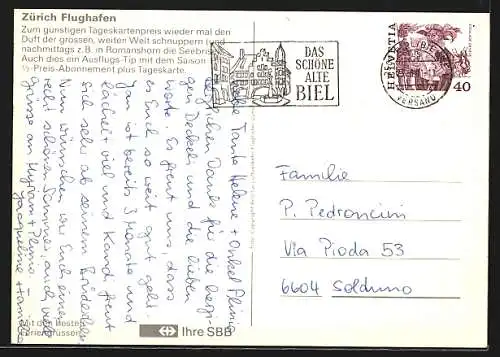 Zürich Flughafen
Zum günstigen Tageskartenpreis wieder mal den
Duft der grossen, weiten Welt schnuppern (und
nachmittags z.B. in Romanshorn die Seebrise
Auch dies ein Ausflugs-Tip mit dem Saison
½-Preis-Abonnement plus Tageskarte.
DAS
SCHÖNE
ALTE
BIEL
HELVETIA
40
VERSAND
Liebe Tante Helene + Onkel Plinio
Danke für die
gen Deckel und die lieben
Worte. Es freut uns, dass
es Euch so weit gut geht.
Yan ist bereits 3 Monate und
lächelt viel und Kandi freut
sich sehr ab seinem Brüderlein
Nun wünschen wir Euch einen
recht schönen Sommer, auch viele
Grüsse an Myriam + Plinio
Jacqueline +
Familie
P. Pedroncini
Via Pioda 53
6604 Solduno
Mit den besten
Feriengrüssen
Ihre SBB